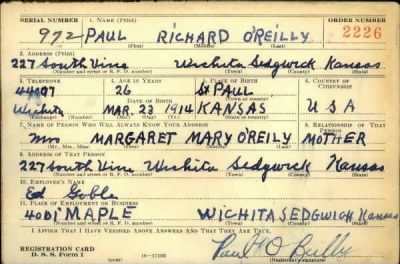 SERIAL NUMBER 1. NAME (Print) ORDER NUMBER
992 PAUL RICHARD O'REILLY 2226
(First) (Middle) (Last)
2. ADDRESS (Print)
227 South Vine Wichita Sedgwick Kansas
(Number and street or R. F. D. number) (Town) (County) (State)
3. TELEPHONE 4. AGE IN YEARS 5. PLACE OF BIRTH 6. COUNTRY OF CITIZENSHIP
44197 26 St PAUL
DATE OF BIRTH
Wichita MAR. 23 1914 KANSAS USA
(Exchange) (Number) (Mo.) (Day) (Yr.) (State or country)
7. NAME OF PERSON WHO WILL ALWAYS KNOW YOUR ADDRESS 8. RELATIONSHIP OF THAT PERSON
Mrs MARGARET MARY O'REILY MOTHER
(Mr., Mrs., Miss) (First) (Middle) (Last)
9. ADDRESS OF THAT PERSON
227 South Vine Wichita Sedgwick Kansas
(Number and street or R. F. D. number) (Town) (County) (State)
10. EMPLOYER'S NAME
Ed Goble
11. PLACE OF EMPLOYMENT OR BUSINESS
4001 MAPLE WICHITA SEDGWICK Kansas
(Number and street or R. F. D. number) (Town) (County) (State)
I AFFIRM THAT I HAVE VERIFIED ABOVE ANSWERS AND THAT THEY ARE TRUE.
REGISTRATION CARD
D. S. S. Form 1 16—17105 Paul O'Reilly